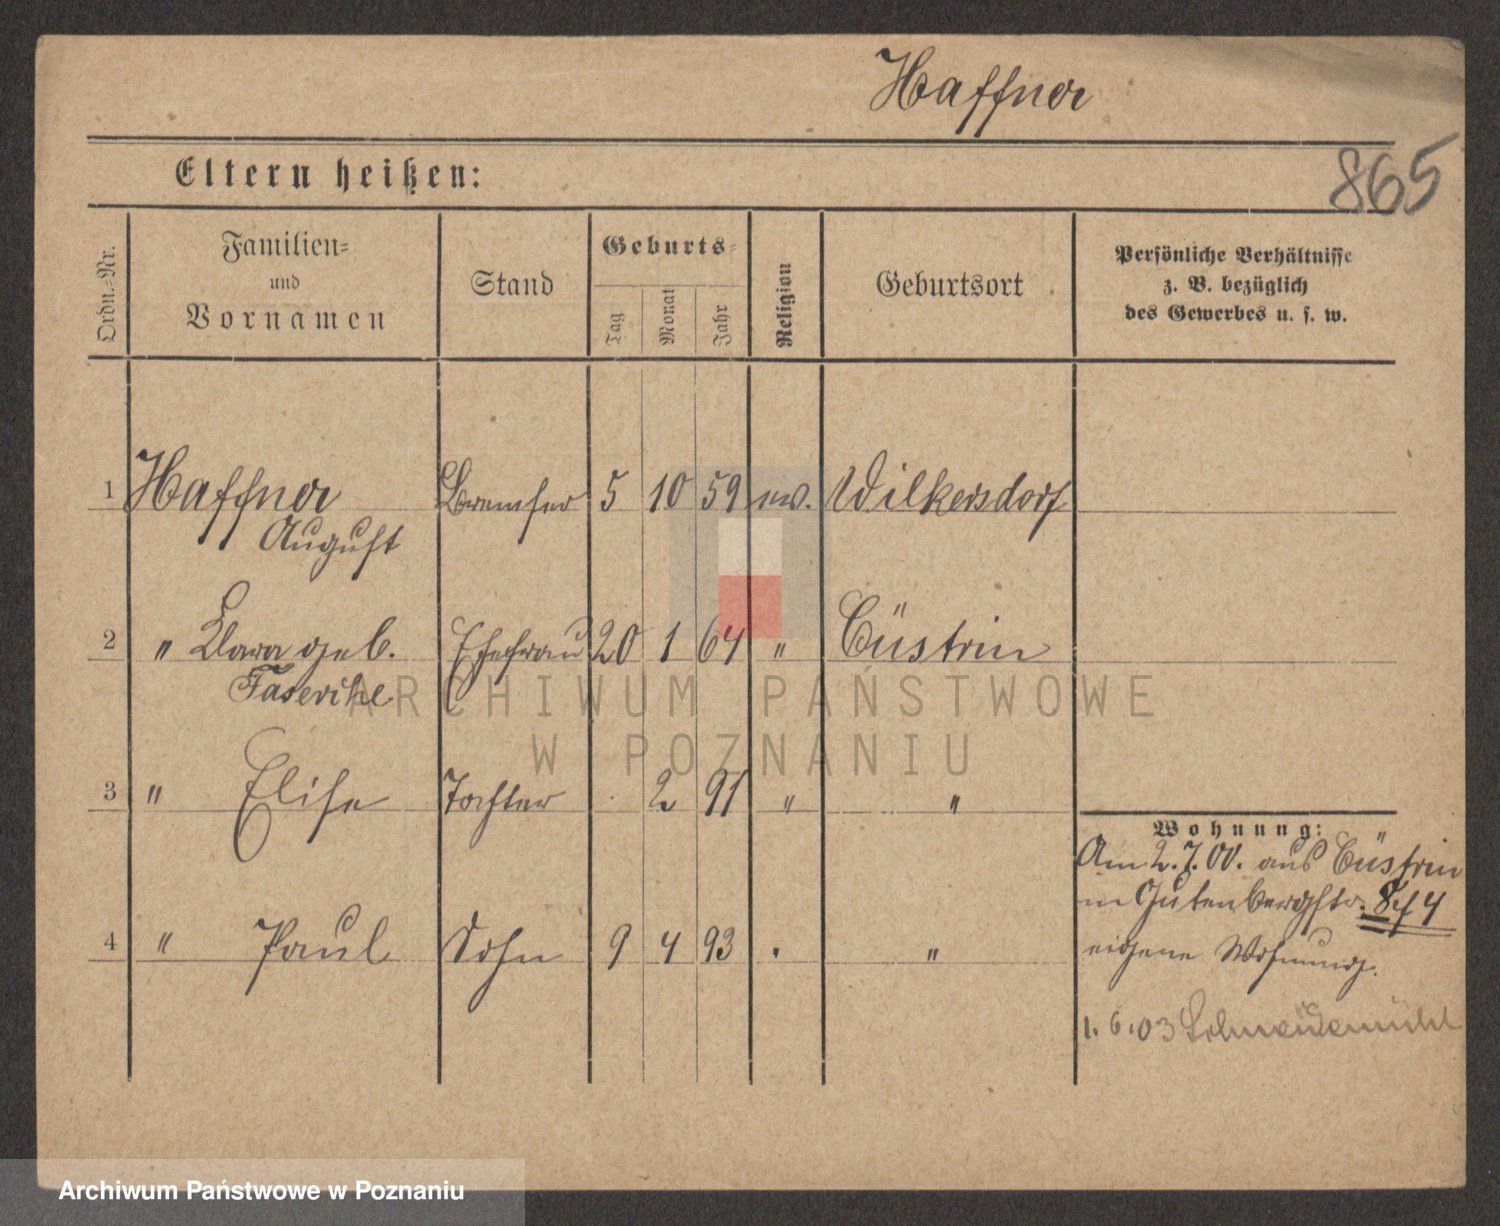 Haffner
865
Eltern heißen:
Ordn.-Nr.
Familien-
und
Vornamen
Stand
Geburts-
Tag
Monat
Jahr
Religion
Geburtsort
Persönliche Verhältnisse
z. B. bezüglich
des Gewerbes u. s. w.
1 Haffner Bremser 5 10 59 ev. Wilkersdorf
August
2 " Clara geb. Ehefrau 20 1 64 " Cüstrin
ARCHIWUM PAŃSTWOWE
W POZNANIU
3 " Elise Tochter 2 91 " "
Wohnung:
Am 2.7.00. aus Cüstrin
in Gutenbergstr.
4 " Paul Sohn 9 4 93 . "
eigene Wohnung.
1.6.03 Schneidemühl
Archiwum Państwowe w Poznaniu